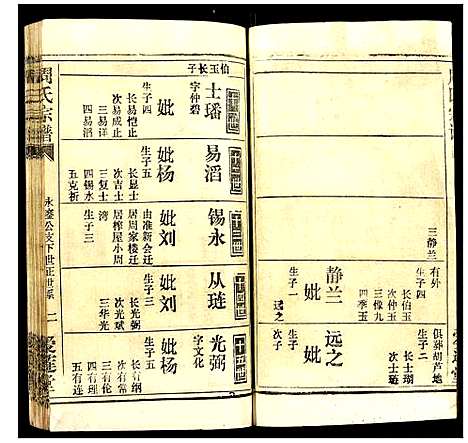 三静兰
有外
静兰
妣
生子四
长伯玉
次仲玉
三像九
四季玉
生子一
远之
俱葬胡芦地
远之
妣
生子二
长士瑞
次士琏
次子
伯玉长子
士璠
字仲碧
妣
生子四
长易恺止
次易成止
三易详
四易滔
易滔
妣杨
生子五
长显士
次吉士
三复士
四锡水
五克祈
锡永
妣刘
由淮新会迁
居周家楼迁
居榨屋小周
湾
生子三
从琏
妣刘
生子三
长光弼
次光斌
三华光
光弼
字文化
妣杨
生子五
长有纲
次有纪
三有伦
四有理
五有连
周氏宗谱
永鉴公支下世正世系
二
爱莲堂